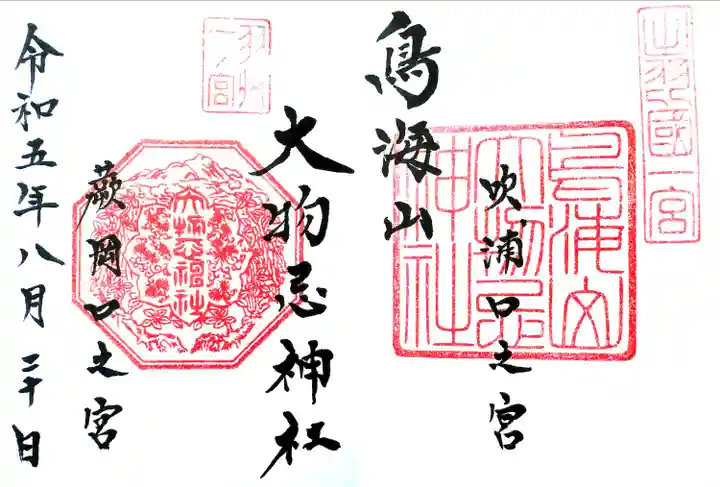 出羽國一宮
吹浦口之宮
鳥海山大物忌神社
鳥海山
大物忌神社
羽州一ノ宮
蕨岡口之宮
大物忌神社
令和五年八月二十日